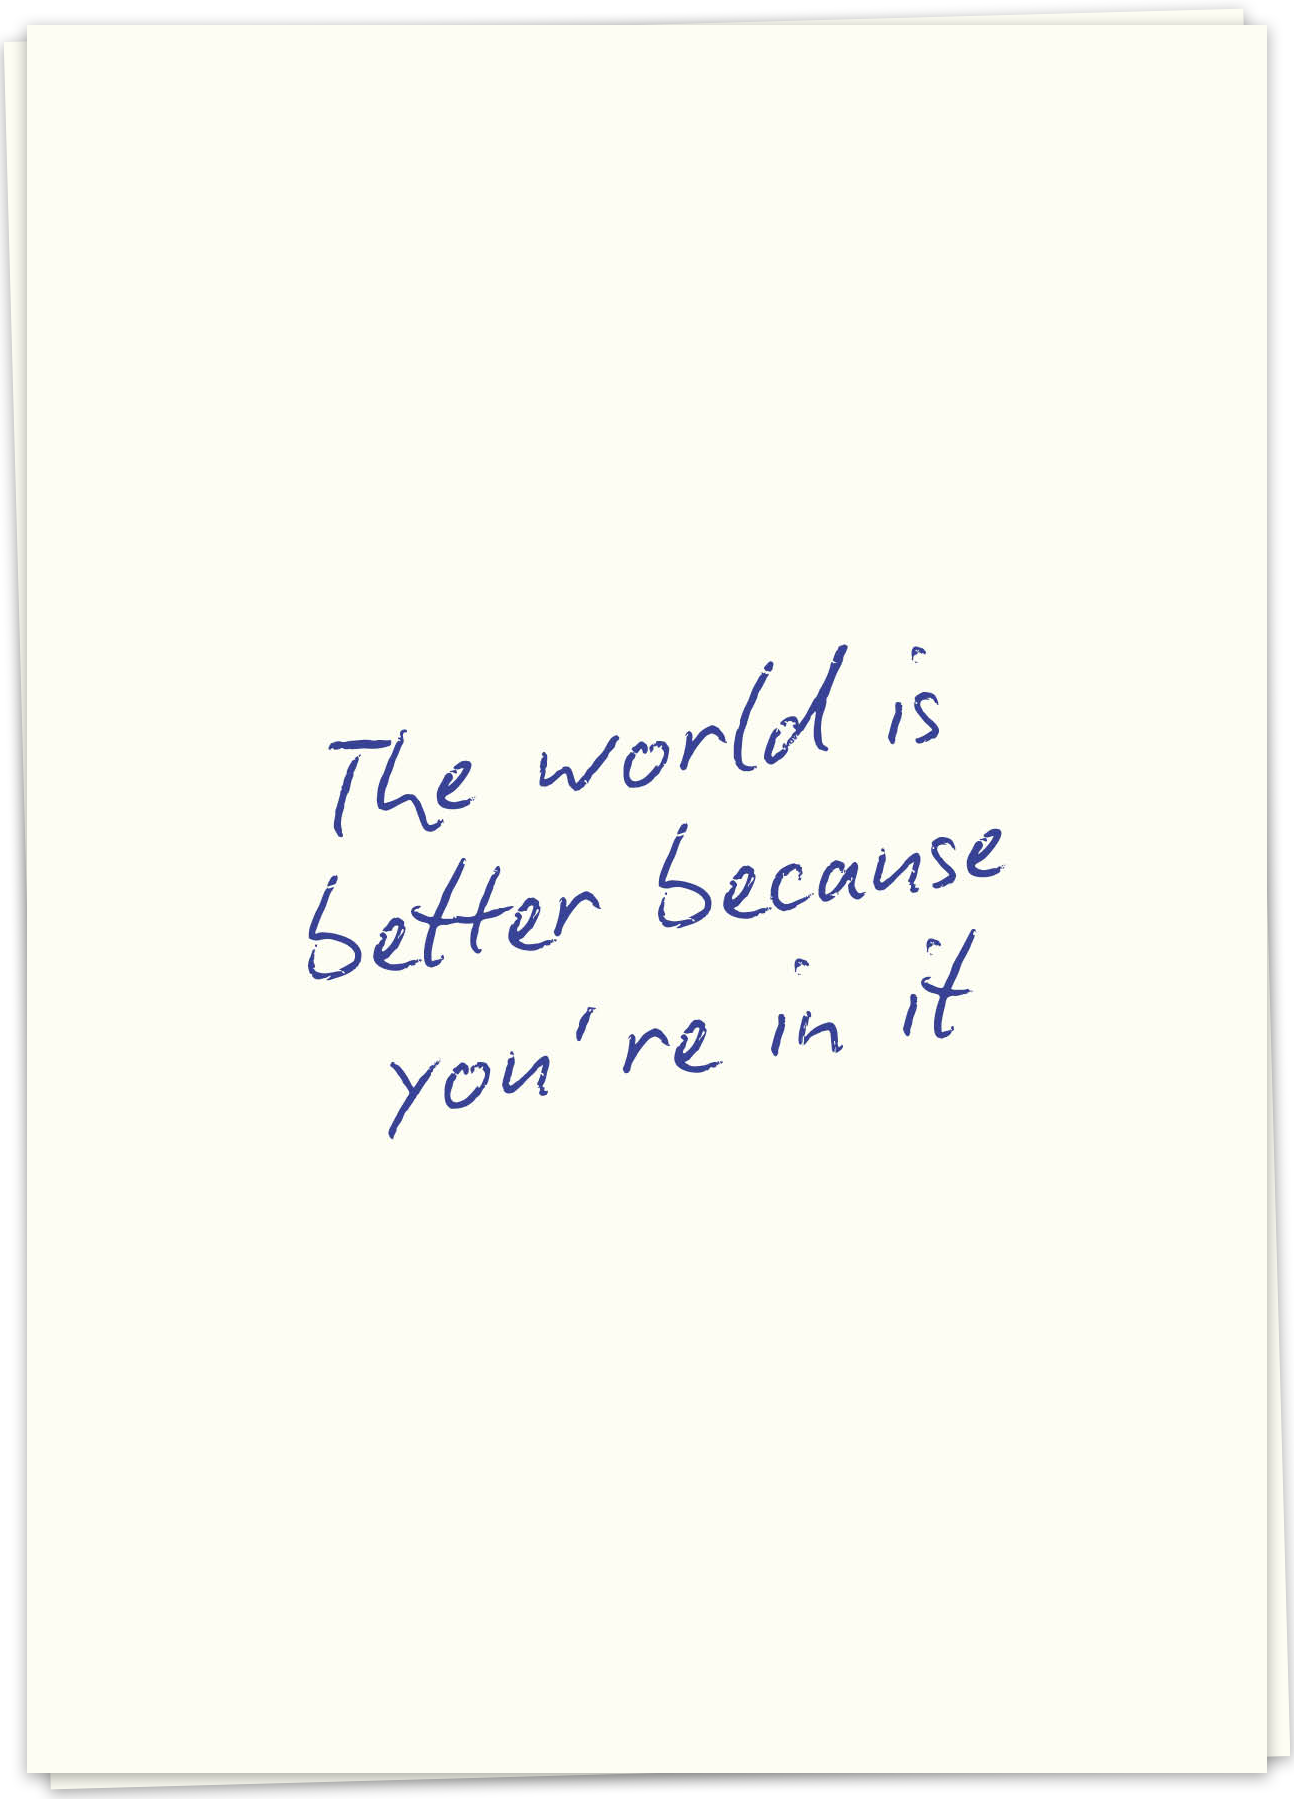 The world is
better because
you're in it